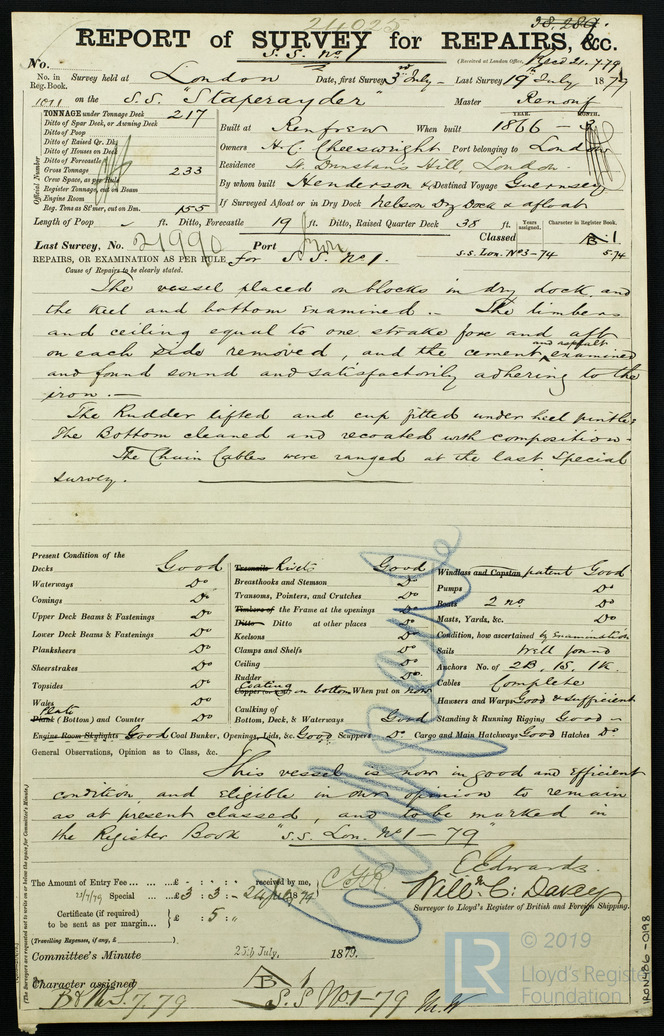 24025
38,289
REPORT of SURVEY for REPAIRS, &c.
S.S. No 1
(Received at London Office, Recd 21.7.79
No.
No. in Reg. Book. Survey held at London Date, first Survey 3rd July - Last Survey 19th July 1879
1011 on the S.S. "Staperayder" Master Renouf
TONNAGE under Tonnage Deck 217
Ditto of Spar Deck, or Awning Deck
Ditto of Poop
Ditto of Raised Qr. Dk.
Ditto of Houses on Deck
Ditto of Forecastle
Gross Tonnage 233
Crew Space, as per Rule
Register Tonnage, cut on Beam
Engine Room
Reg. Tons as St'mer, cut on Bm. 155
Official Number
YEAR. MONTH.
Built at Renfrew When built 1866 - 3
Owners H. C. Cheeswright Port belonging to London
Residence St. Dunstans Hill, London
By whom built Henderson & Co Destined Voyage Guernsey
If Surveyed Afloat or in Dry Dock Nelson Dry Dock & afloat
Length of Poop ft. Ditto, Forecastle 19 ft. Ditto, Raised Quarter Deck 38 ft.
Years assigned. Character in Register Book.
Last Survey, No. 21990 Port Iron Classed A-1
REPAIRS, OR EXAMINATION AS PER RULE, for S.S. No 1. S.S. Lon. No 3-74 5.74
Cause of Repairs to be clearly stated.
The vessel placed on blocks in dry dock and
the keel and bottom examined. - The limbers
and ceiling equal to one strake fore and aft
on each side removed, and the cement and asphalt examined
and found sound and satisfactorily adhering to the
iron. -
The Rudder lifted and cup fitted under heel pintle;
The Bottom cleaned and recoated with composition -
The Chain Cables were ranged at the last Special
Survey.
Present Condition of the
Decks Good
Waterways Do
Comings Do
Upper Deck Beams & Fastenings Do
Lower Deck Beams & Fastenings Do
Planksheers Do
Sheerstrakes Do
Topsides Do
Wales Do
Plate
Plank (Bottom) and Counter Do
Treenails Rivets Good
Breasthooks and Stemson Do
Transoms, Pointers, and Crutches Do
Timbers of the Frame at the openings Do
Ditto Ditto at other places Do
Keelsons Do
Clamps and Shelfs Do
Ceiling Do
Rudder Do
Coating
on bottom When put on now
Caulking of
Bottom, Deck, & Waterways Good
Windlass and Capstan patent Good
Pumps Do
Boats 2 no. Do
Masts, Yards, &c. Do
Condition, how ascertained by Examination
Sails Well found
Anchors No. of 2B, 1S, 1K.
Cables Complete
Hawsers and Warps Good & sufficient
Standing & Running Rigging Good -
Engine Room Skylights Good Coal Bunker, Openings, Lids, &c. Good Scuppers Do Cargo and Main Hatchways Good Hatches Do
General Observations, Opinion as to Class, &c.
This vessel is now in good and Efficient
condition and eligible in our opinion to remain
as at present classed, and to be marked in
the Register Book "S.S. Lon. No 1 - 79"
The Amount of Entry Fee ... £ : : received by me,
Special ... £ 3 : 3 : - 24 July 1879
Certificate (if required) £ : 5 : "
to be sent as per margin...
(Travelling Expenses, if any, £ )
E Edwards.
Willm C. Davey
Surveyor to Lloyd's Register of British and Foreign Shipping.
Committee's Minute 25th July, 1879.
Character assigned A 1
B&MS. 7.79 S.S. No 1-79
© 2019
LR
Lloyd's Register
Foundation
IRON486-0198
(The Surveyors are requested not to write on or below the space for Committee's Minute.)